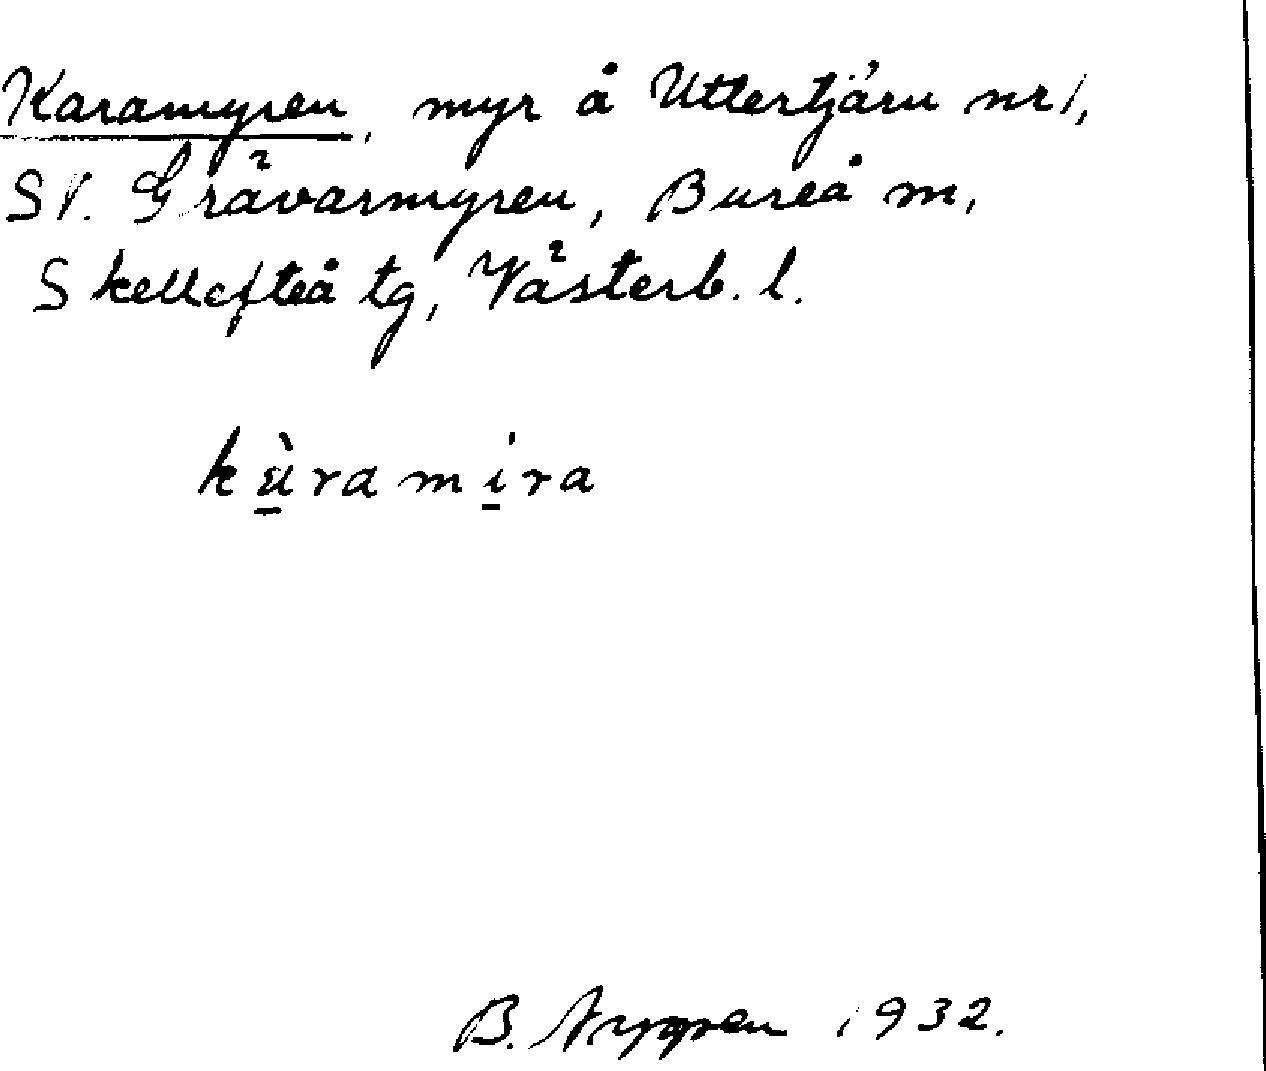 Karamyren, myr å Uttertjärn nr 1,
SV. Grävarmyren, Bureå m,
Skellefteå tg, Västerb. l.
kùramíra
B. Nygren 1932.